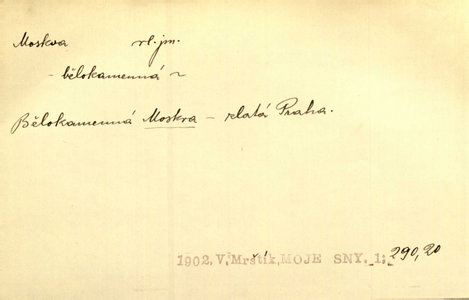 Moskva vl. jm.
- bělokamenná ~
Bělokamenná Moskva – zlatá Praha.
1902. V. Mrštík, MOJE SNY. 1; 290,20